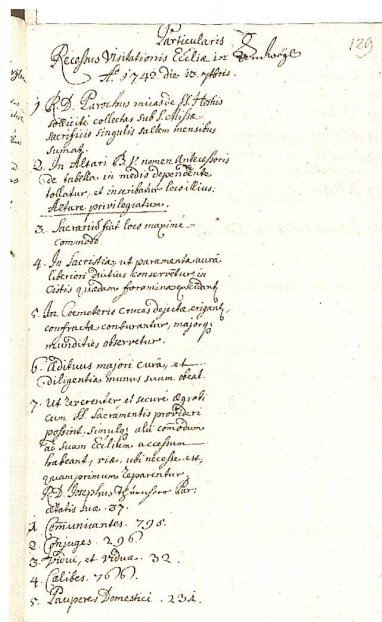 Particularis
129
Recessus Visitationis Ecclīae in
Aõ 1742 die 13 7bris.
1. R.D. Parochus micas de SS. Hostiis
sollicite collectas sub S. Missae
sacrificiis singulis saltem mensibus
sumat.
2. In Altari B.V. nomen Antecessoris
de tabella in medio dependente
tollatur, et inscribatur loco illius:
Altare privilegiatum.
3. Sacrarium fiat loco maxime
commodo.
4. In Sacristia, ut paramenta aura
liberiori diutius conserventur, in
cistis quaedam foramina
5. In Coemeterio Cruces dejectae erigantur,
confractae comburantur, majorq;
mundities observetur.
6. Aedituus majori cura, et
diligentia munus suum obeat.
7. Ut reverenter et secure aegroti
cum SS. Sacramentis provideri
possint, simulq; alii comodum
ad suam Ecclīam accessum
habeant, viae, ubi necesse est,
quam primum reparentur.
R.D. Josephus Par:
aetatis suae 37.
1. Com̄unicantes. 795.
2. Conjuges. 296
3. Vidui, et Viduae. 32.
4. Caelibes. 766.
5. Pauperes Domestici. 231.